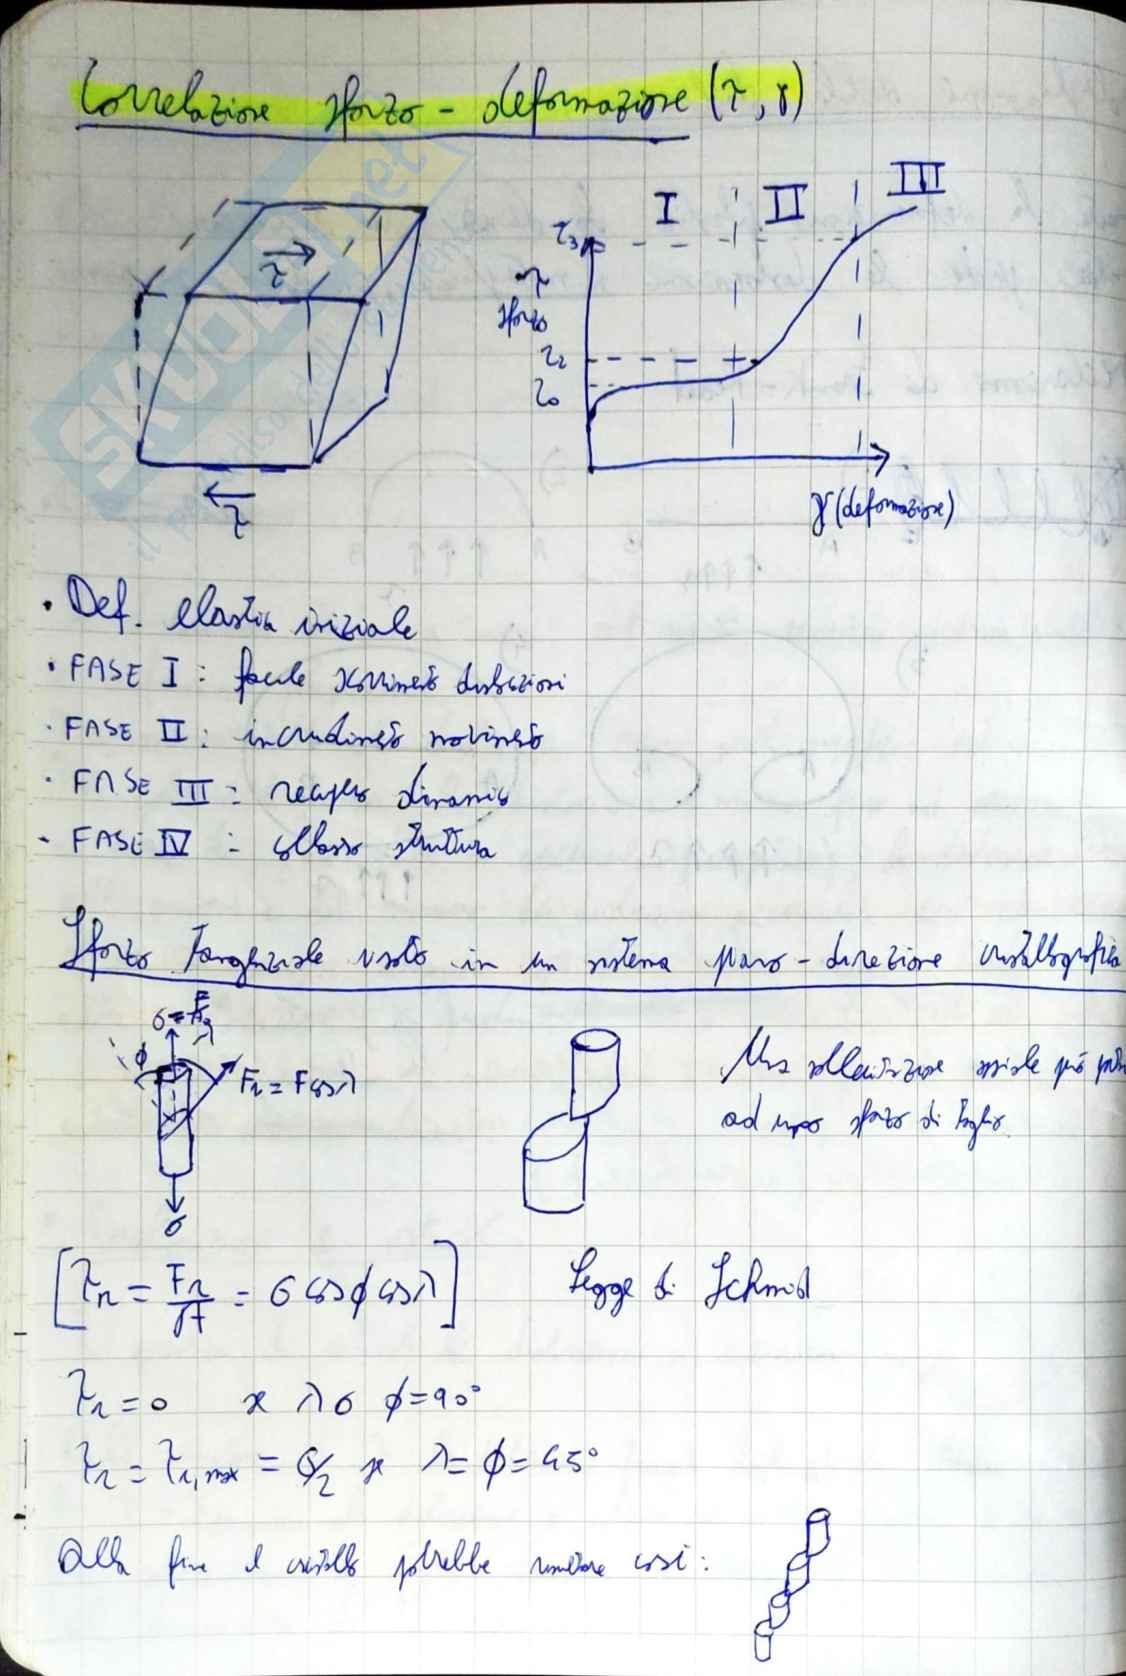 Correlazione sforzo - deformazione (τ, γ)
I II III
τ₃
τ
sforzo
τ₂
τ₀
γ (deformazione)
τ
τ
· Def. elastica iniziale
· FASE I : facile scorrimento dislocazioni
· FASE II : incrudimento movimento
· FASE III : recupero dinamico
- FASE IV : collasso struttura
Sforzo tangenziale visto in un sistema piano - direzione cristallografica
σ = F/A₀
λ
ϕ
Fr = F cosλ
σ
Una sollecitazione assiale può
ad uno sforzo di taglio.
[τr = Fr/A = σ cosϕ cosλ] Legge di Schmid
τr = 0 x λ o ϕ = 90°
τr = τr,max = σ/2 x λ = ϕ = 45°
Alla fine il cristallo potrebbe risultare così :
SKUOLA.net